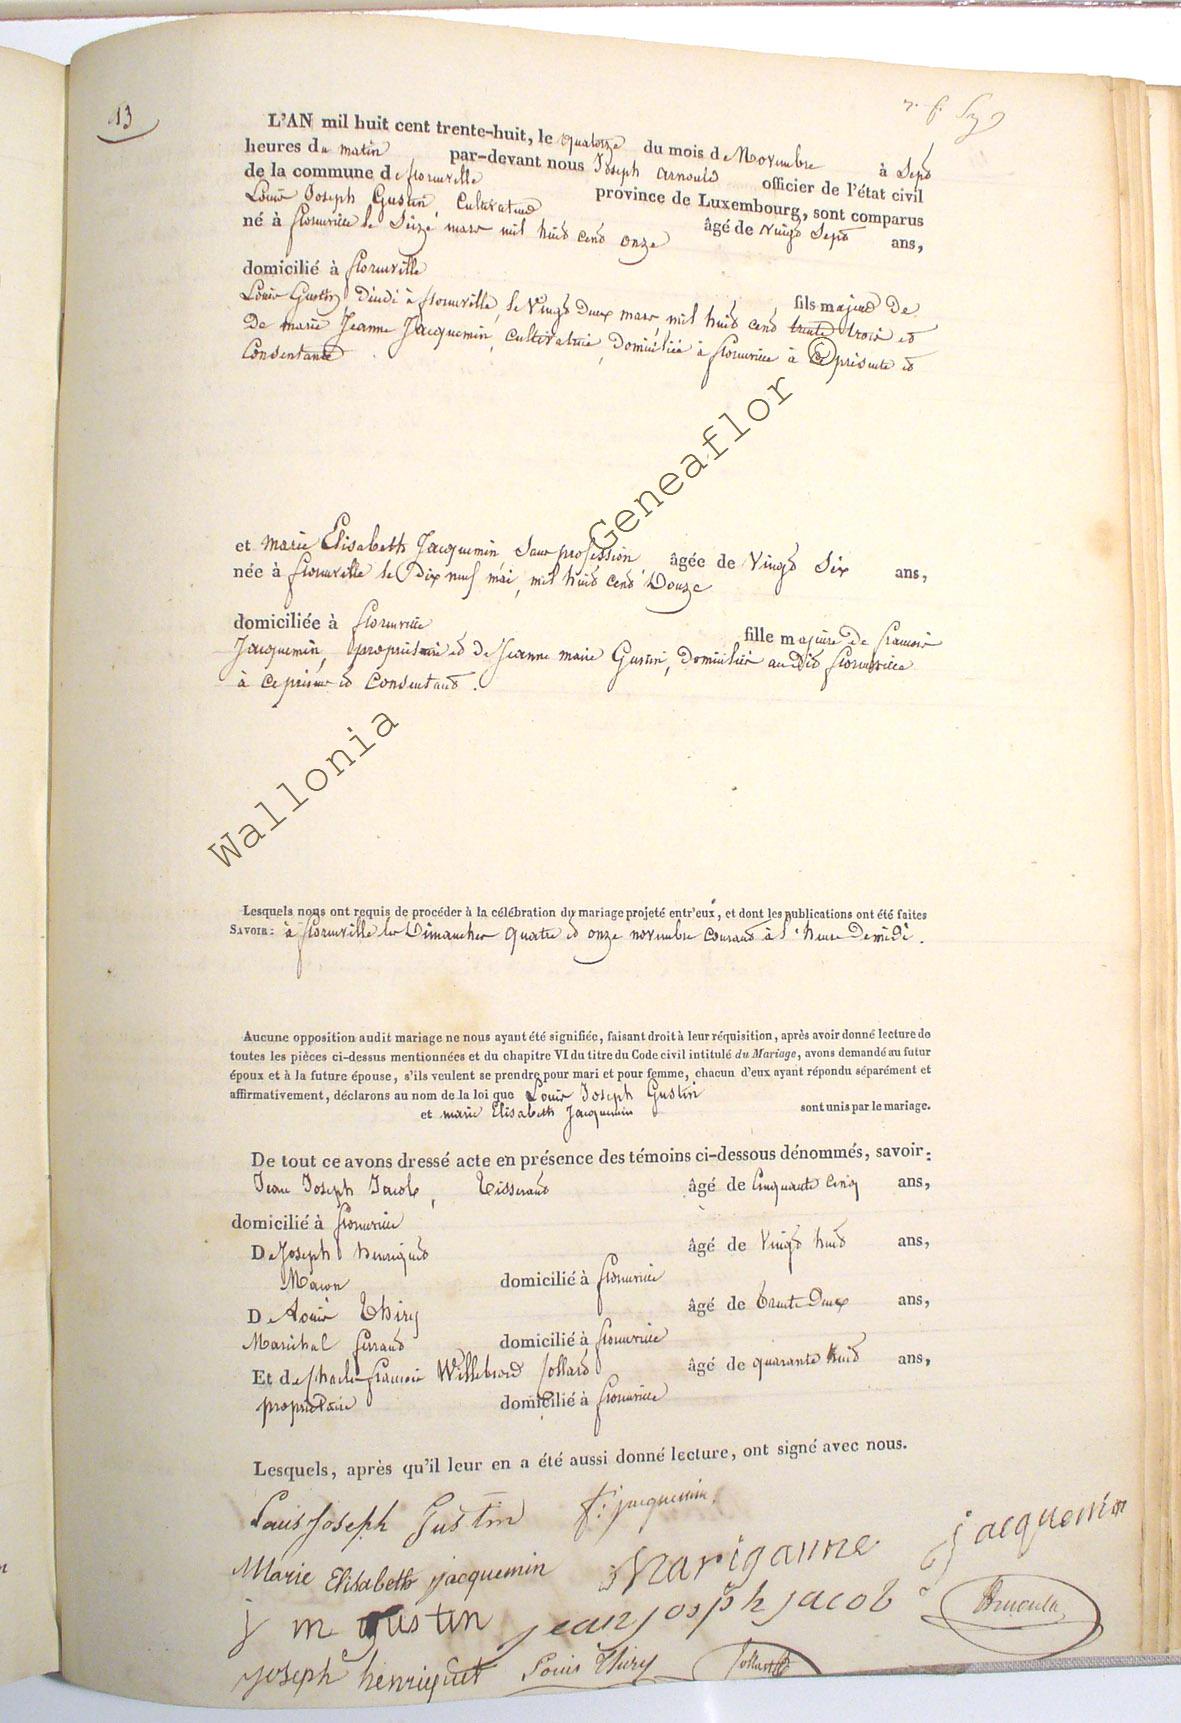 13
L'AN mil huit cent trente-huit, le quatorze du mois de Novembre à Sept
heures du matin par-devant nous Joseph Arnould officier de l'état civil
de la commune de florenville province de Luxembourg, sont comparus
Louis Joseph Gustin, Cultivateur âgé de vingt Sept ans,
né à florenville le Seize mars mil huit cent onze
domicilié à florenville fils majeur de
Louis Gustin décédé à florenville, le Vingt Deux mars mil huit cent trente trois et
De marie Jeanne Jacquemin, cultivatrice, Domiciliée à florenville à ce présente et
Consentante
et marie Elisabeth Jacquemin Sans profession âgée de Vingt Six ans,
née à florenville le Dix neuf mai, mil huit cent Douze
domiciliée à florenville fille majeure de francois
Jacquemin, propriétaire et de Jeanne marie Gustin, Domiciliés au Dit florenville
à ce présens et Consentans.
Lesquels nous ont requis de procéder à la célébration du mariage projeté entr'eux, et dont les publications ont été faites
SAVOIR: à florenville les Dimanches quatre et onze novembre courant à l'heure De midi.
Aucune opposition audit mariage ne nous ayant été signifiée, faisant droit à leur réquisition, après avoir donné lecture de
toutes les pièces ci-dessus mentionnées et du chapitre VI du titre du Code civil intitulé du Mariage, avons demandé au futur
époux et à la future épouse, s'ils veulent se prendre pour mari et pour femme, chacun d'eux ayant répondu séparément et
affirmativement, déclarons au nom de la loi que Louis Joseph Gustin
et marie Elisabeth Jacquemin sont unis par le mariage.
De tout ce avons dressé acte en présence des témoins ci-dessous dénommés, savoir:
Jean Joseph Jacob, Tisserand âgé de Cinquante Cinq ans,
domicilié à florenville
De Joseph henriquet âgé de Vingt huit ans,
Macon domicilié à florenville
De Louis Thiry âgé de trente Deux ans,
Maréchal ferrand domicilié à florenville
Et de Charles francois Willebrord Jollard âgé de quarante huit ans,
propriétaire domicilié à florenville
Lesquels, après qu'il leur en a été aussi donné lecture, ont signé avec nous.
Louis Joseph Gustin f: jacquemin
Marie Elisabeth jacquemin Mariganne jacquemin
j m gustin jean joseph jacob
joseph henriquet Louis Thiry
Wallonia Geneaflor ©